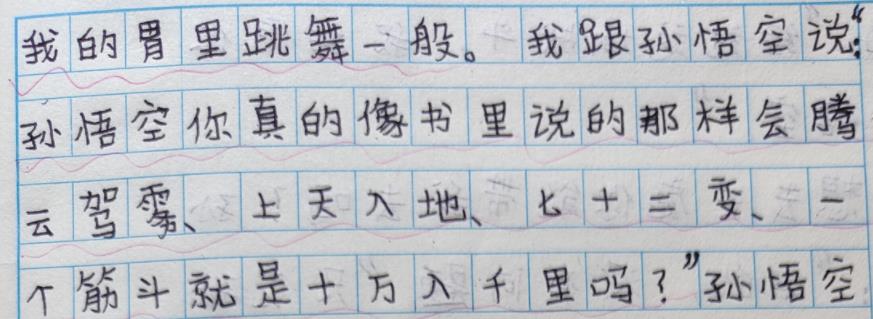 我的胃里跳舞一般。我跟孙悟空说:“
孙悟空你真的像书里说的那样会腾
云驾雾、上天入地、七十二变、一
个筋斗就是十万入千里吗?”孙悟空